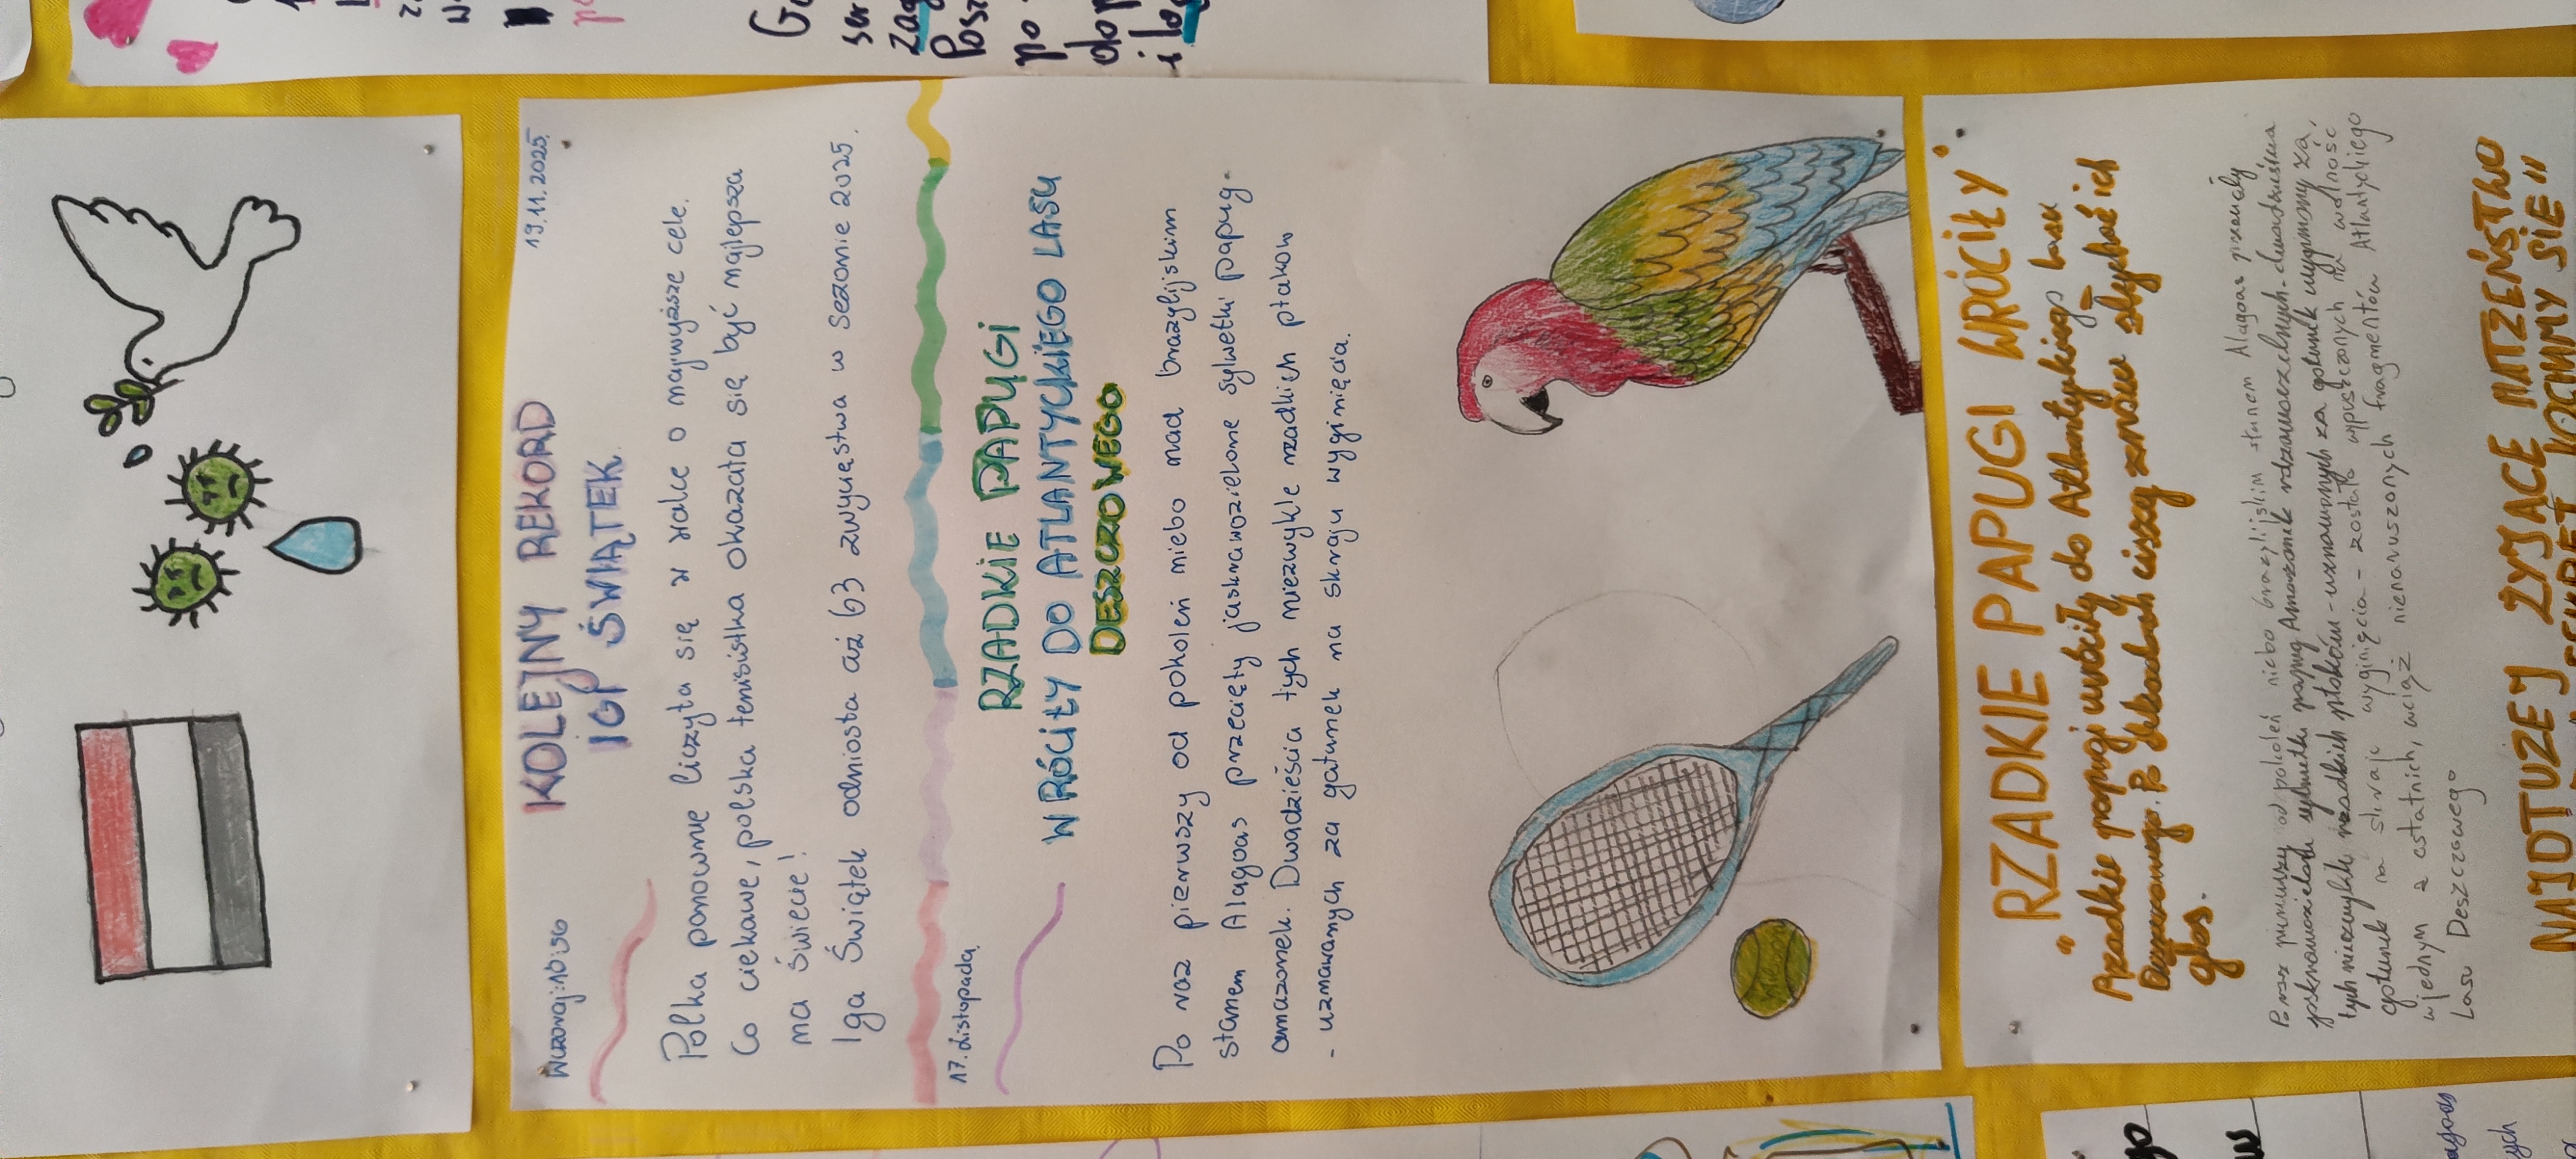 Wczoraj: 10:56
19.11.2025.
KOLEJNY REKORD
IGI ŚWIĄTEK.
Polka ponownie liczyła się w walce o najwyższe cele.
Co ciekawe, polska tenisistka okazała się być najlepsza
na świecie!
Iga Świątek odniosła aż 63 zwycięstwa w sezonie 2025.
17. Listopada
RZADKIE PAPUGI
WRÓCIŁY DO ATLANTYCKIEGO LASU
DESZCZOWEGO
Po raz pierwszy od pokoleń niebo nad brazylijskim
stanem Alagoas przecięły jaskrawozielone sylwetki papug-
amazonek. Dwadzieścia tych niezwykle rzadkich ptaków
- uznawanych za gatunek na skraju wyginięcia.
"RZADKIE PAPUGI WRÓCIŁY"
Rzadkie papugi wróciły do Atlantyckiego Lasu
Deszczowego. Po dekadach ciszy znów słychać ich
głos.
Po raz pierwszy od pokoleń niebo brazylijskim stanem Alagoas przecięły
jaskrawozielone sylwetki papug Amazonek
tych niezwykle rzadkich ptaków - uznawanych za gatunek za
gatunek na skraju wyginięcia - zostało wypuszczonych na wolność
w jednym z ostatnich, wciąż nienaruszonych fragmentów Atlantyckiego
Lasu Deszczowego
NAJDŁUŻEJ ŻYJĄCE
KOCHAMY SIĘ"